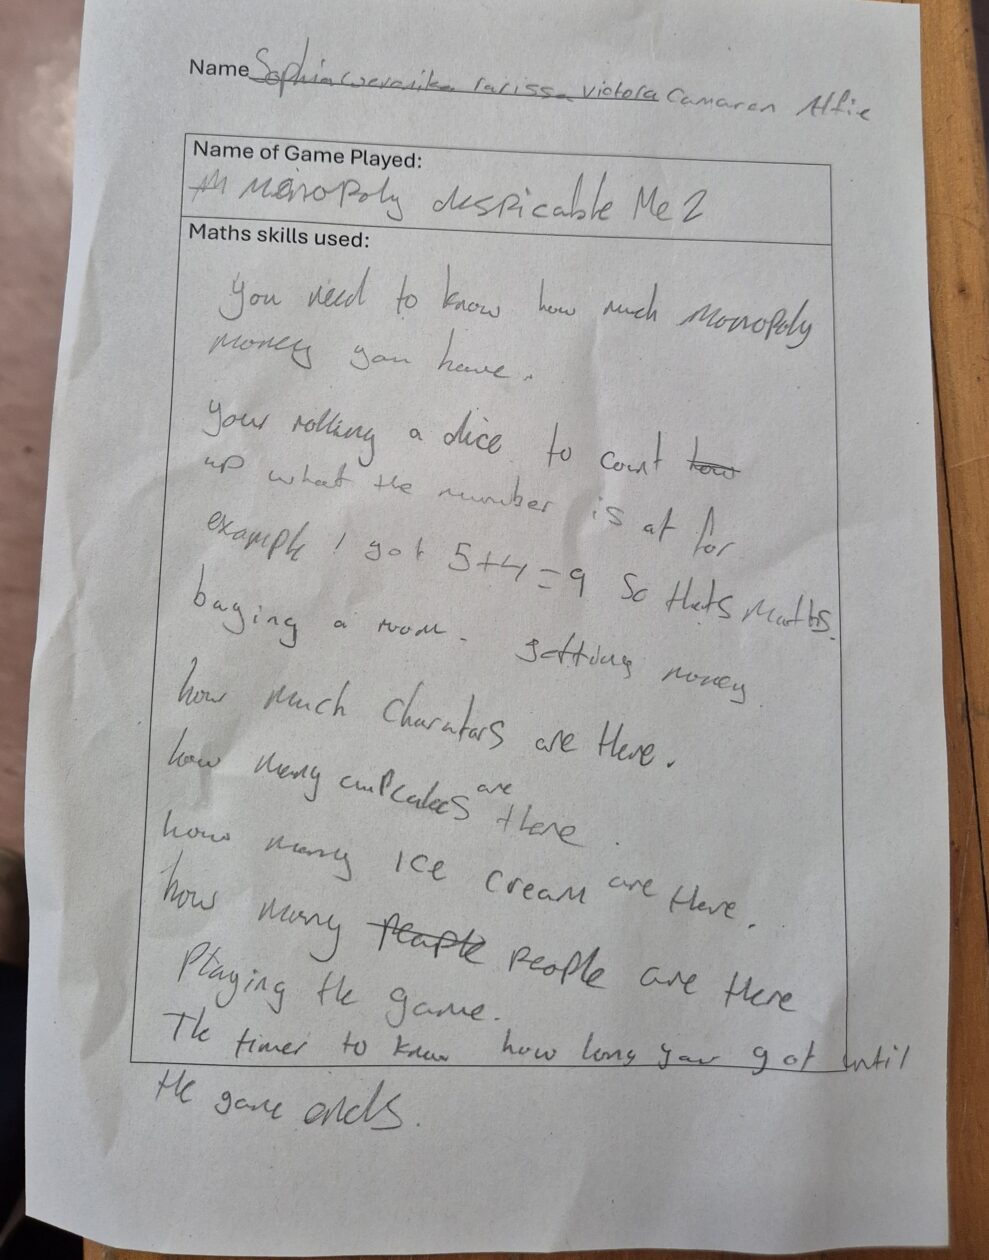 Name Sophia weronika larissa victora Camaron Alfie
Name of Game Played:
M Monopoly despicable Me 2
Maths skills used:
you need to know how much Monopoly
money you have.
your rolling a dice to count how
up what the number is at for
example I got 5+4=9 So thats Maths.
buying a room. getting money
how much Charatars are there.
how many cupcakes are there
how many ice cream are there.
how many peaple people are there
Playing the game.
The timer to know how long you got until
the game ends.